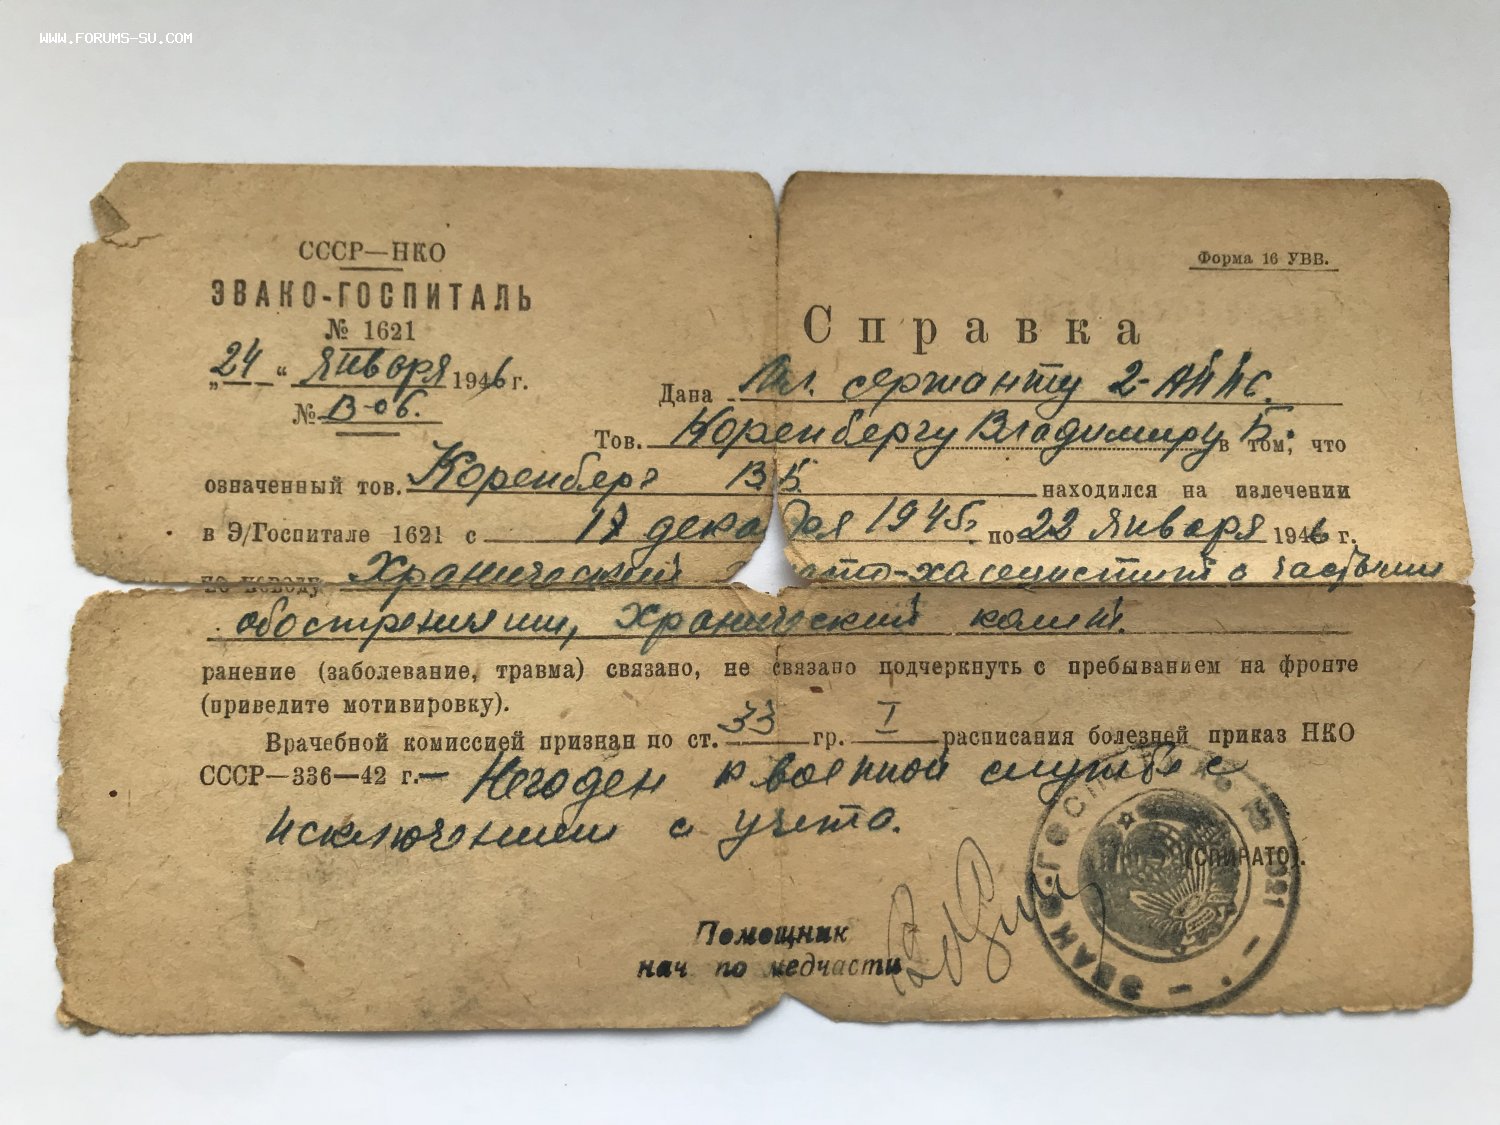 WWW.FORUMS-SU.COM
СССР—НКО
ЭВАКО-ГОСПИТАЛЬ
№ 1621
„24“ января 1946 г.
№ В-06.
Форма 16 УВВ.
Справка
Дана Мл. сержанту 2-
Тов. Коренбергу Владимиру Б. в том, что
означенный тов. Коренберг В.Б. находился на излечении
в Э/Госпитале 1621 с 17 декабря 1945г. по 22 января 1946 г.
по поводу Хранический с частыми
обострениями, Хранический колит.
ранение (заболевание, травма) связано, не связано подчеркнуть с пребыванием на фронте
(приведите мотивировку).
Врачебной комиссией признан по ст. 33 гр. I расписания болезней приказ НКО
СССР—336—42 г.— Негоден к военной службе с
исключением с учета.
(СПИРАТО).
Помощник
нач по медчасти
ЭВАКО-ГОСПИТАЛЬ № 1621